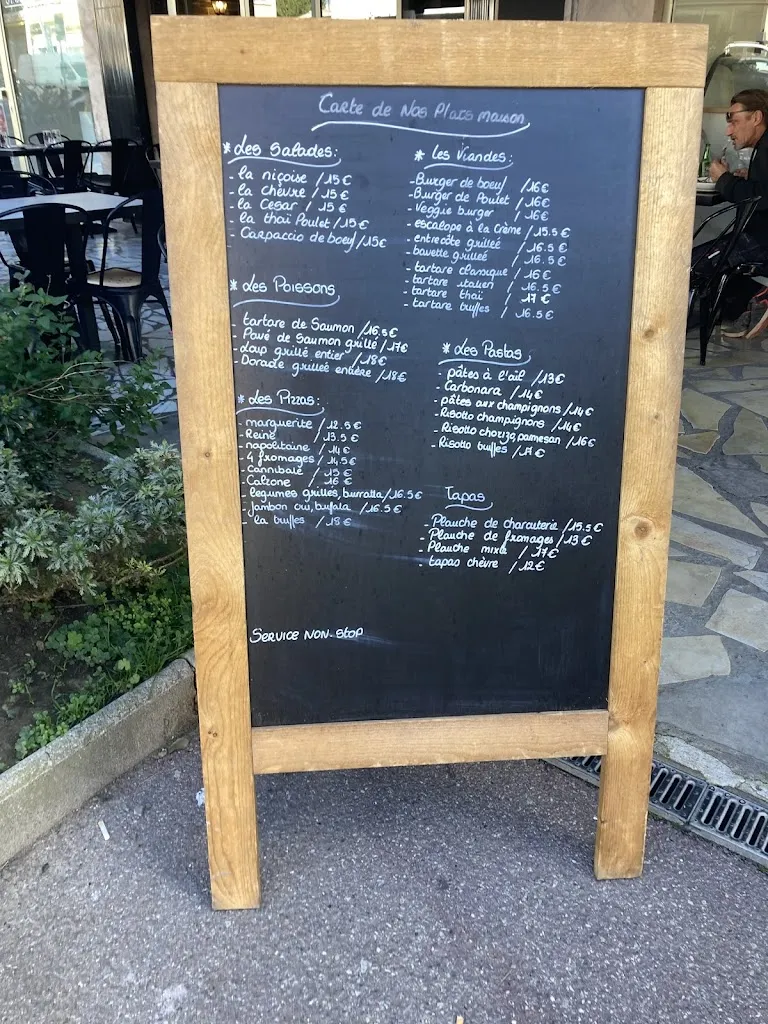 Carte de Nos Plats maison
* Les Salades:
- la niçoise /15€
- la chèvre /15€
- la Cesar /15€
- la thaï Poulet /15€
- Carpaccio de boeuf /15€
* Les Poissons
- tartare de Saumon /16.5€
- Pavé de Saumon grillé /17€
- Loup grillé entier /18€
- Dorade grilleé entière /18€
* Les Pizzas:
- marguerite /12.5€
- Reine /13.5€
- napolitaine /14€
- 4 fromages /14.5€
- Cannibale /15€
- Calzone /16€
- legumes grilles, burratta /16.5€
- Jambon cru, bufala /16.5€
- la truffes /18€
SERVICE NON-STOP
* Les Viandes:
- Burger de boeuf /16€
- Burger de Poulet /16€
- Veggie burger /16€
- escalope à la Crème /15.5€
- entrecôte grilleé /16.5€
- bavette grilleé /16.5€
- tartare classique /16€
- tartare italien /16.5€
- tartare thaï /17€
- tartare truffes /16.5€
* Les Pastas
- pâtes à l'ail /13€
- Carbonara /14€
- pâtes aux champignons /14€
- Risotto champignons /14€
- Risotto chorizo, parmesan /16€
- Risotto truffes
Tapas
- Planche de charcuterie /15.5€
- Planche de fromages /13€
- Planche mixte /17€
- tapas chèvre /12€